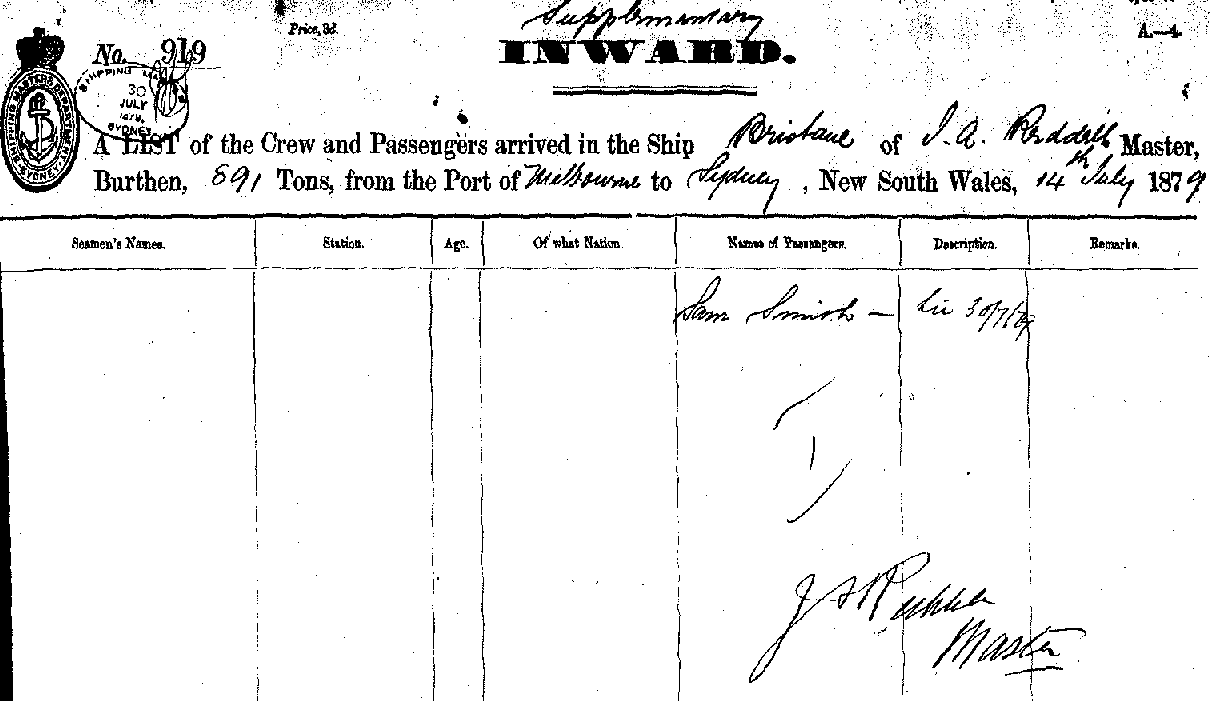 Supplementary
Price, 3d.
A.—4.
No. 919
INWARD.
SHIPPING MASTERS DEPARTMENT SYDNEY
SHIPPING
30
JULY
SYDNEY
A LIST of the Crew and Passengers arrived in the Ship Brisbane of J. A. Master,
Burthen, 891 Tons, from the Port of Melbourne to Sydney, New South Wales, 14th July 1879
Seamen's Names. Station. Age. Of what Nation. Names of Passengers. Description. Remarks.
Sam Smith —
Master